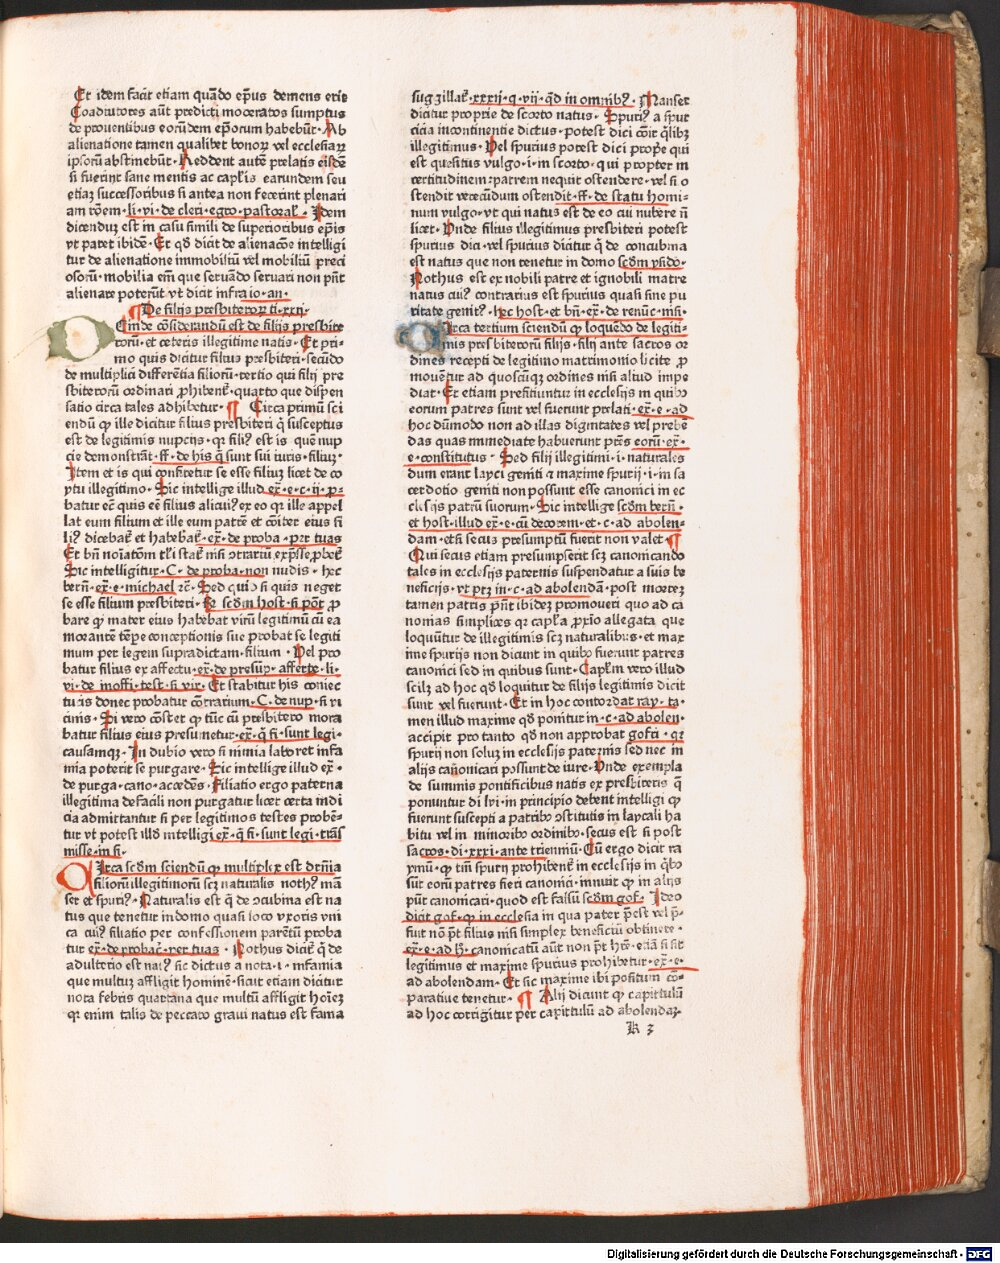 Et idem facit etiam quādo ep̄us demens erit
Coadiutores aūt predicti moderatos sumptus
de prouentibus eorūdem ep̄orum habebūt · Ab
alienatione tamen qualibet bonoꝝ vel ecclesiaꝝ
ipsorū abstinebūt · Reddent autē prelatis eisdē
si fuerint sane mentis ac capl̄is earundem seu
etiaꝫ successoribus si antea non fecerint plenari
am rōem · li · vi · de cleri · egro · pastoral̄ · Idem
dicenduꝫ est in casu simili de superioribus ep̄is
vt patet ibidē · Et qd̄ dicit de alienacōe intelligi
tur de alienatione immobiliū vel mobiliū preci
osorū · mobilia em̄ que seruādo seruari non pn̄t
alienare poterūt vt dicit infra io · an ·
¶ De filijs presbiteroꝝ ti · xxi ·
Einde cōsiderandū est de filijs presbite
rorū · et ceteris illegitime natis · Et pri-
mo quis dicitur filius presbiteri · secūdo
de multiplici differētia filiorū · tertio qui filij pre
sbiterorū ordinari ꝓhibentꝛ · quarto que dispen
satio circa tales adhibetur · ¶ Circa primū sci
endū ꝙ ille dicitur filius presbiteri q̇ susceptus
est de legitimis nupcijs · qꝛ filiꝰ est is quē nup
cie demonstrāt · ff · de his q̇ sunt sui iuris · filiuꝫ ·
Item et is qui confitetur se esse filiuꝫ licet de co
ytu illegitimo · Sic intellige illud ex̄ · e · c · ij · ꝓ-
batur ec̄ quis eē filius alicuiꝰ ex eo qꝛ ille appel
lat eum filium et ille eum patrē et cōiter eius fi
liꝰ dicebat᷑ et habebat᷑ · ex̄ · de proba · per tuas
Et bn̄ noīatōm tl̄i stat᷑ nisi ɔtrariū exp̄sse ꝓbet᷑
Sic intelligitur · C · de proba · non nudis · hec
bern̄ · ex̄ · e · michael ⁊c̄ · Sed quid si quis neget
se esse filium presbiteri · Rͬ scd̄m host · si pōt ꝓ
bare ꝙ mater eius habebat virū legitimū cū ea
morantē tēpe conceptionis sue probat se legiti
mum per legem supradictam · filium · Vel pro
batur filius ex affectu · ex̄ · de presūp · afferte · li ·
vi · de inoffi · test · si vir · Et stabitur his coniec
turis donec probatur cōtrarium · C · de nup · si vi
cinis · Si vero cōstet ꝙ tūc cū presbitero mora
batur filius eius presumetur · ex̄ · q̇ fi · sunt legi ·
causamqꝫ · In dubio vero si nimia laboret infa
mia poterit se purgare · Sic intellige illud ex̄ ·
de purga · cano · accedēs · Filiatio ergo paterna
illegitima de facili non purgatur licet certa indi
cia admittantur si per legitimos testes probē-
tur vt potest illd̄ intelligi ex̄ · q̇ fi · sunt legi · trās
misse · in fi ·
Irca scd̄m sciendū ꝙ multiplex est dr̄n̄ia
filiorū illegitimorū scꝫ naturalis nothꝰ mā
ser et spuriꝰ · Naturalis est q̇ de ɔcubina est na
tus que tenetur in domo quasi loco vxoris vni
ca cuiꝰ filiatio per confessionem parētū proba
tur ex̄ · de probac̄ · per tuas · Nothus dicit᷑ q̇ de
adulterio est natꝰ sic dictus a nota · i · infamia
que multuꝫ affligit hominē · sicut etiam dicitur
nota febris quartana que multū affligit hoīeꝫ
qꝛ enim talis de peccato graui natus est fama
suggillat᷑ · xxxij · q · vij · qd̄ in omnibꝰ · Manser
dicitur proprie de scorto natus · Spuriꝰ a spur
cicia incontinentie dictus · potest dici cōit̄ q̇libꝫ
illegitimus · Vel spurius potest dici propꝛe qui
est quesitus vulgo · i · in scorto · qui propter in
certitudinem patrem nequit ostendere · vel si o
stendit verecūdum ostendit · ff · de statu homi-
num vulgo · vt qui natus est de eo cui nubere n̄
licet · Unde filius illegitimus presbiteri potest
spurius dici · vel spurius dicitur q̇ de concubina
est natus que non tenetur in domo scd̄m ysido ·
Nothus est ex nobili patre et ignobili matre
natus cuiꝰ contrarius est spurius quasi sine pu
ritate genitꝰ · hec host · et bn̄ · ex̄ · de renūc · nisi ·
Irca tertium sciendū ꝙ loquēdo de legiti-
mis presbiterorū filijs · filij ante sacros or
dines recepti de legitimo matrimonio licite ꝓ
mouētur ad quoscūqꝫ ordines nisi aliud impe
diat · Et etiam prefitiuntur in ecclesijs in quibꝰ
eorum patres sunt vel fuerunt prelati · ex̄ · e · ad
hoc dūmodo non ad illas dignitates vel preben
das quas immediate habuerunt pr̄es eorū · ex̄ ·
e · constitutus · Sed filij illegitimi · i · naturales
dum erant layci geniti ⁊ maxime spurij · i · in sa
cerdotio geniti non possunt esse canonici in ec
clesijs patrū suorum · Sic intellige scd̄m bern̄ ·
et host · illud ex̄ · e · cū decorem · et · c · ad abolen-
dam · et si secus presumptū fuerit non valet ¶
Qui secus etiam presumpserit scꝫ canonicando
tales in ecclesijs paternis suspendatur a suis be
neficijs · vt pꝫ in · c · ad abolendā · post mortem
tamen patris pn̄t ibideꝫ promoueri quo ad ca
nomas simplices qꝛ capl̄a ꝓxīo allegata que
loquūtur de illegitimis scꝫ naturalibus · et max
ime spurijs non dicunt in quibꝰ fuerunt patres
canonici sed in quibus sunt · Capl̄m vero illud
scilꝫ ad hoc qd̄ loquitur de filijs legitimis dicit
sunt vel fuerunt · Et in hoc concordat ray · ta-
men illud maxime qd̄ ponitur in · c · ad abolen ·
accipit pro tanto qd̄ non approbat gofri · qꝛ
spurij non soluꝫ in ecclesijs paternis sed nec in
alijs canonicari possunt de iure · Unde exempla
de summis pontificibus natis ex presbiteris q̄
ponuntur di lvi · in principio debent intelligi ꝙ
fuerunt suscepti a patribꝰ ɔstitutis in laycali ha
bitu vel in minoribꝰ ordinibꝰ · secus est si post
sacros · di · xxxi · ante trienniū · Cū ergo dicit ra
ymū · ꝙ tm̄ spurij prohibent᷑ in ecclesijs in q̇bꝰ
sūt eorū patres fieri canonici · innuit ꝙ in alijs
pn̄t canonicari · quod est falsū scd̄m gof · Ideo
dicit gof · ꝙ in ecclesia in qua pater p̄est vel p̄-
fuit nō pōt filius nisi simplex beneficiū obtinere ·
ex̄ · e · ad hͦ · canonicatū aūt non pōt hr̄e · etiā si sit
legitimus et maxime spurius prohibetur · ex̄ · e ·
ad abolendam · Et sic maxime ibi positum cō-
paratiue tenetur · ¶ Alij dicunt ꝙ capitulū
ad hoc corrigitur per capitulū ad abolendaꝫ ·
K 3
Digitalisierung gefördert durch die Deutsche Forschungsgemeinschaft - DFG